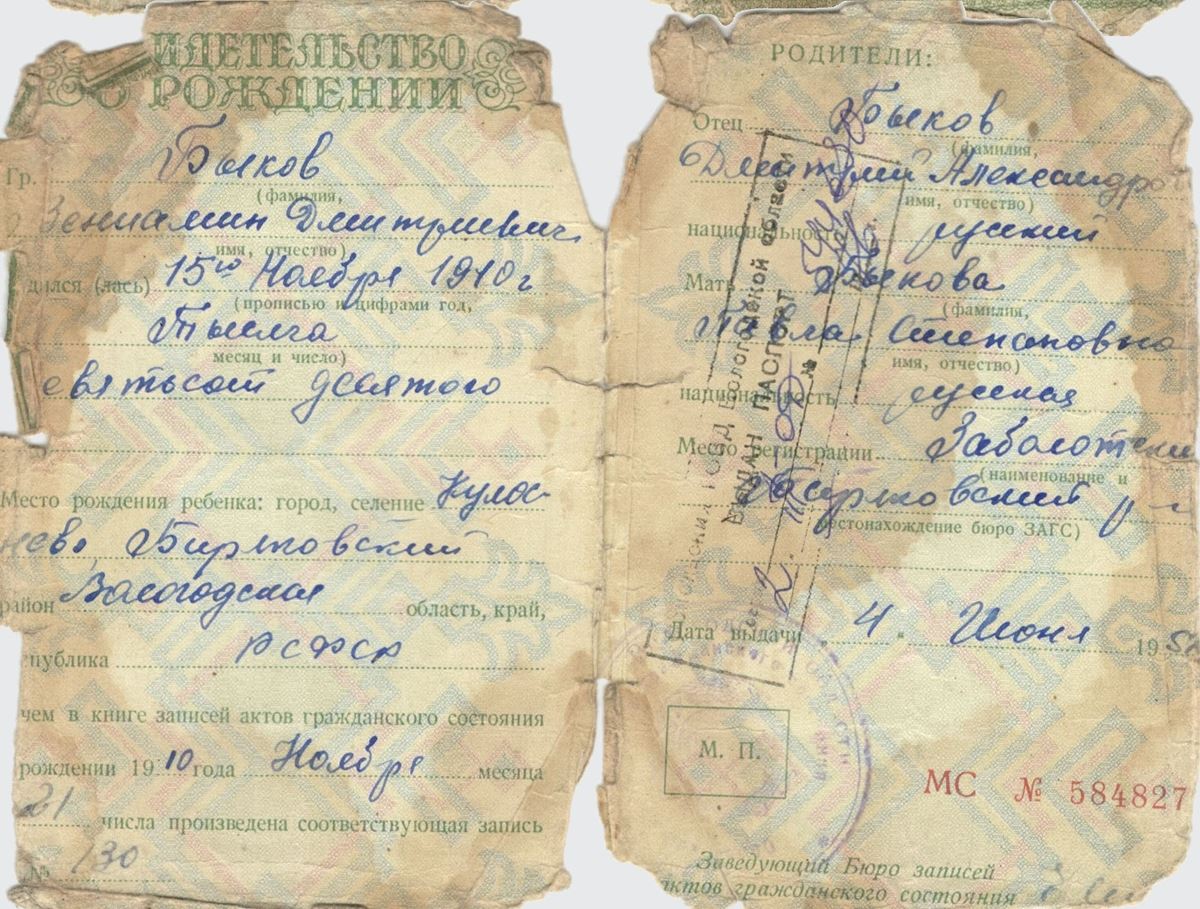 ИДЕТЕЛЬСТВО
О РОЖДЕНИИ
Гр. Быков
(фамилия,
Вениамин Дмитриевич
имя, отчество)
дился (лась) 15го Ноября 1910 г
(прописью и цифрами год,
Тысяча
месяц и число)
евятьсот десятого
Место рождения ребенка: город, селение
Биряковский
район Вологодская область, край,
спублика РСФСР
чем в книге записей актов гражданского состояния
рождении 1910 года Ноября месяца
21 числа произведена соответствующая запись
№ 130
РОДИТЕЛИ:
Отец Быков
(фамилия,
Дмитрий Александро
имя, отчество)
национальнос русский
Мать Быкова
(фамилия,
Степановна
имя, отчество)
национальность русская
Место регистрации Заболотски
(наименование и
Биряковский р-
местонахождение бюро ЗАГС)
Дата выдачи 4 Июня 195
М. П.
МС № 584827
Заведующий Бюро записей
актов гражданского состояния
Вологодской области
ВЫДАН ПАСПОРТ
№